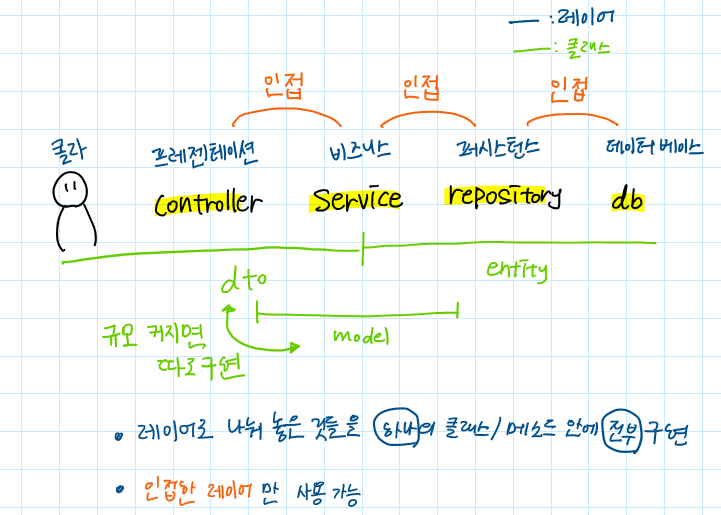 — : 레이어
— : 클래스
인접 인접 인접
클라 프레젠테이션 비즈니스 퍼시스턴스 데이터 베이스
controller service repository db
dto entity
model
규모 커지면
따로구현
• 레이어로 나눠 놓은 것들을 하나의 클래스/메소드 안에 전부 구현
• 인접한 레이어만 사용 가능